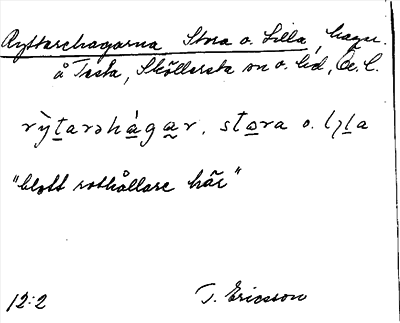 Ryttarehagarna Stora o. Lilla, hagar.
å Tasta, Sköllersta sn o. hd, Ör. l.
rỳt̲arəhá̲ga̰r, sto̲ra o. lı̲l̲a
"blott rothållare här"
12:2 T. Ericsson